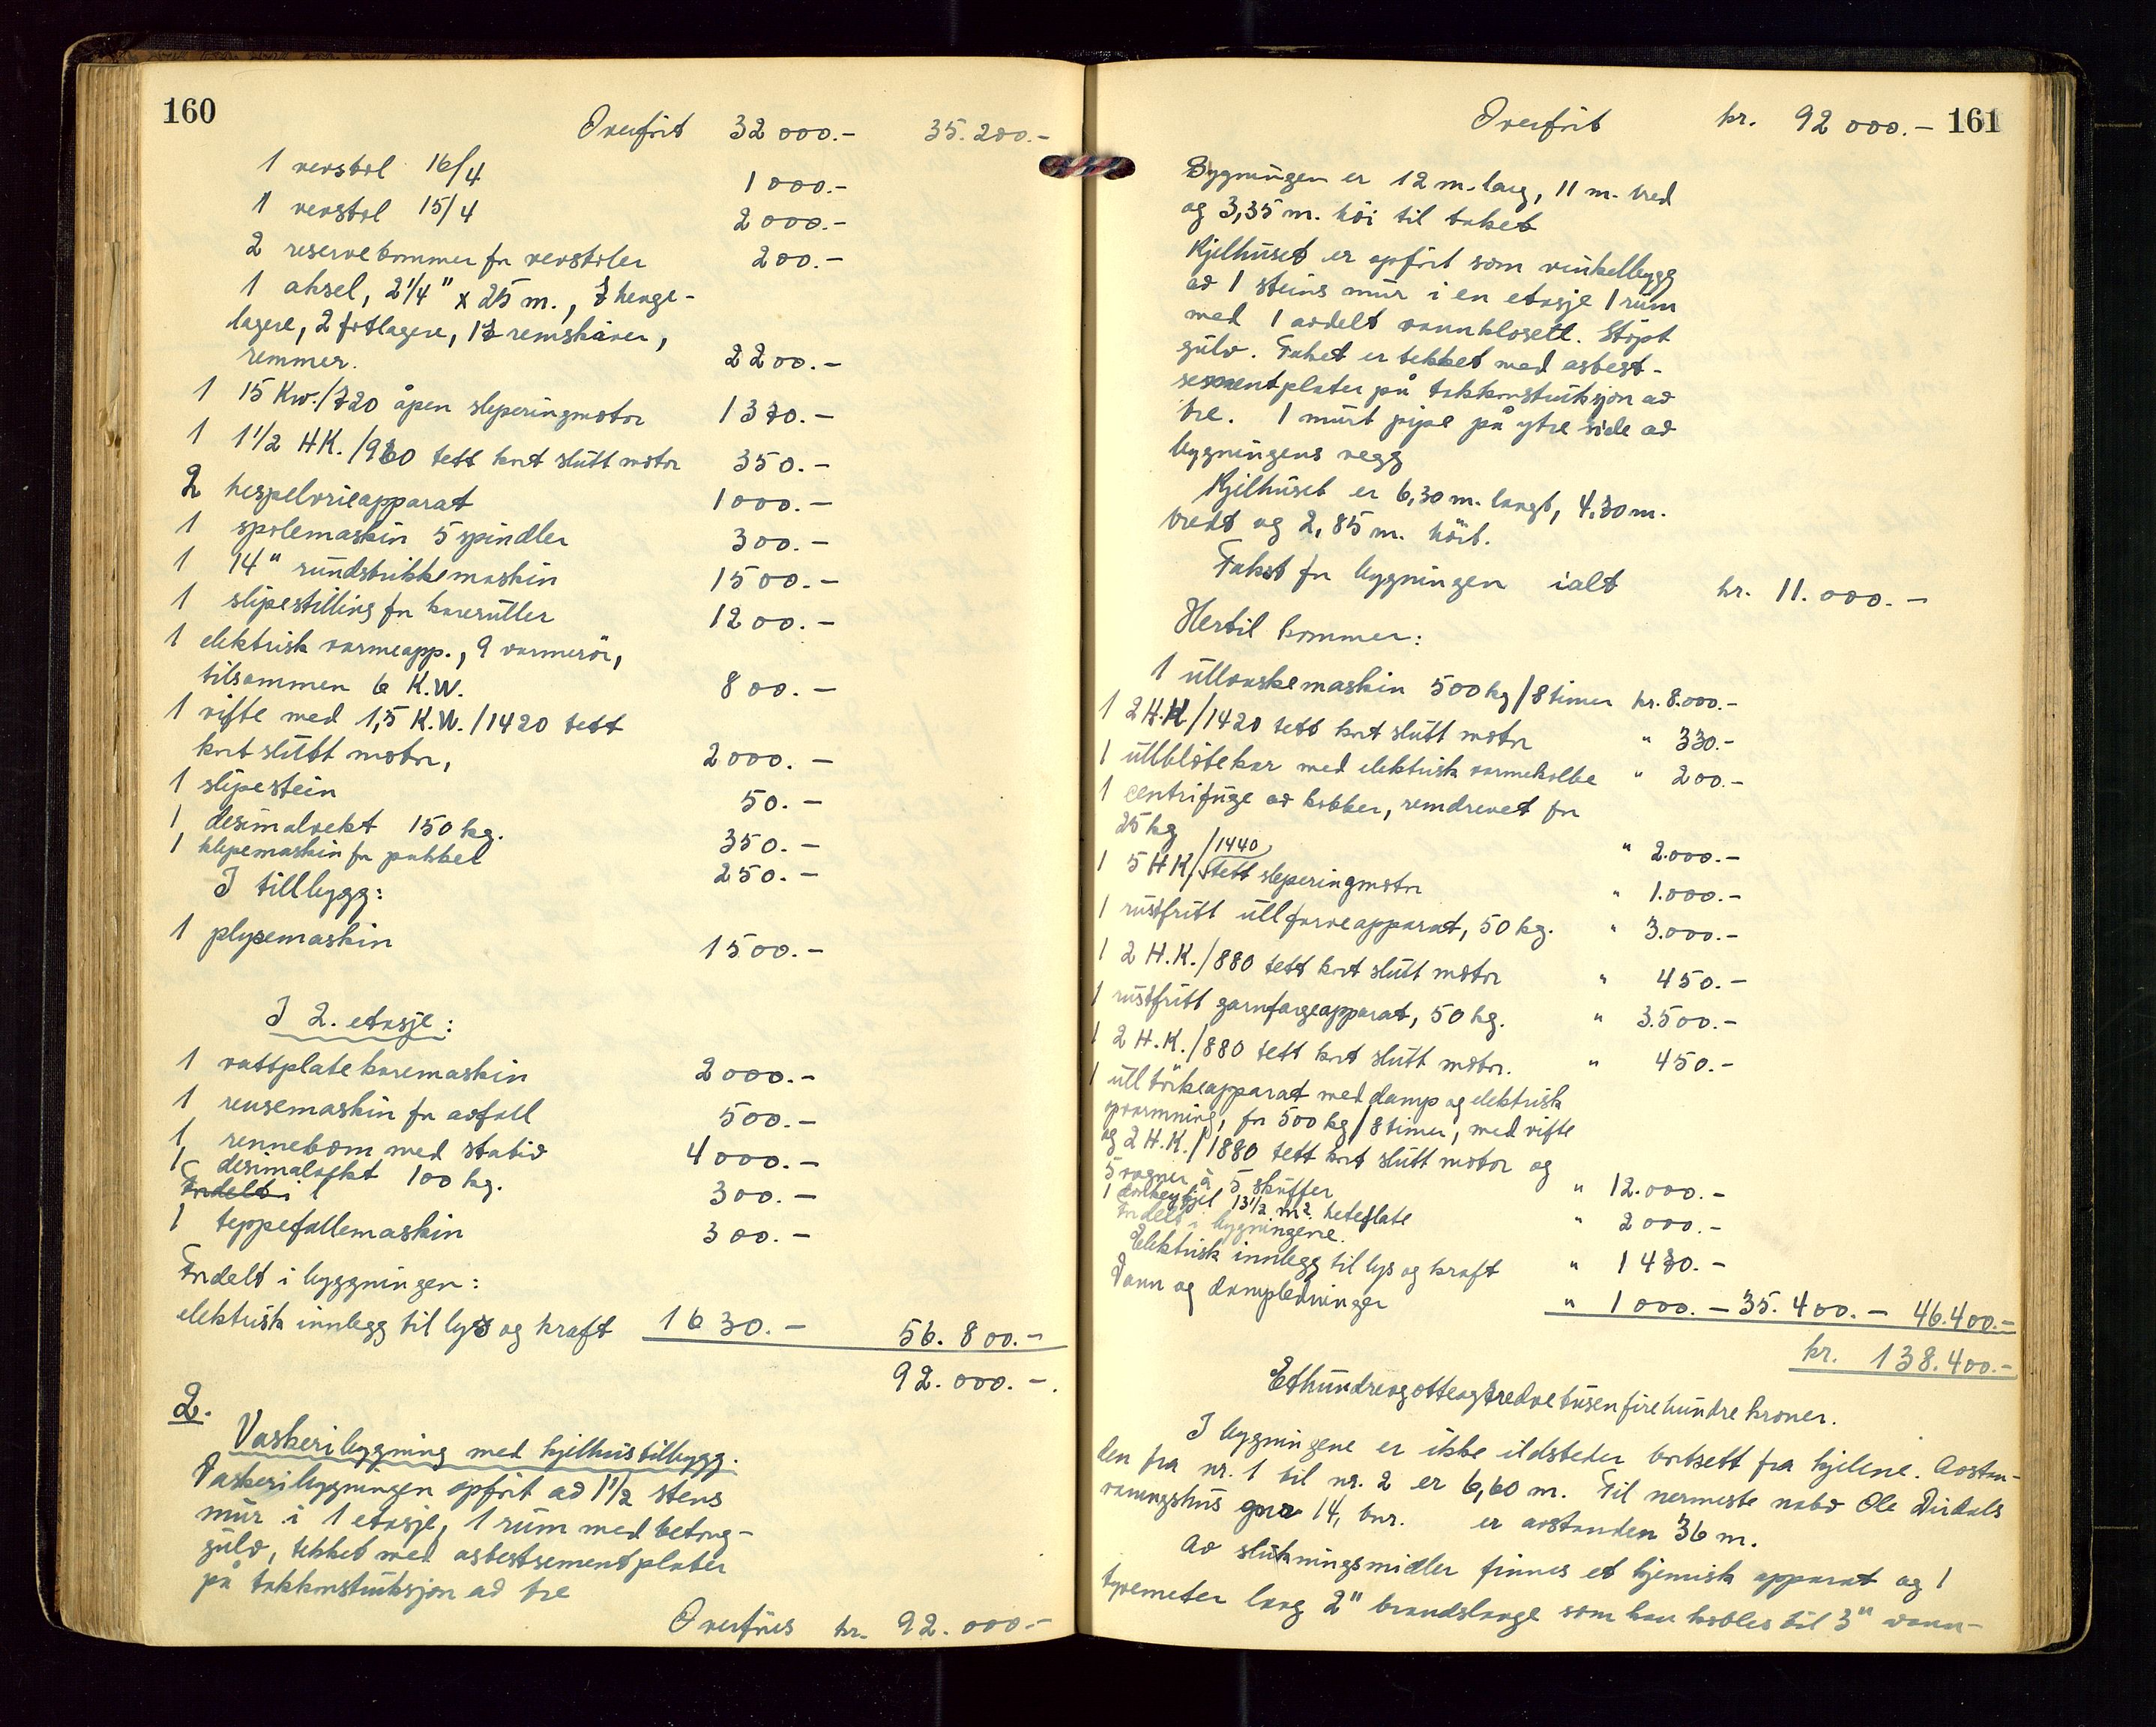 160
Overført 32 000.- 35.200.-
1 vevstol 16/4 1 000.-
1 vevstol 15/4 2 000.-
2 reservebommer for vevstoler 200.-
1 aksel, 2 1/4" x 25 m., 7 henge-
lagere, 2 fotlagere, 17 remskiver,
remmer. 2200.-
1 15 Kw./720 åpen sleperingmotor 1370.-
1 1 1/2 HK./960 tett kortsluttmotor 350.-
2 hespelvrieapparat 1 000.-
1 spolemaskin 5 spindler 300.-
1 14" rundstrikkemaskin 1500.-
1 slipestilling for kareruller 1200.-
1 elektrisk varmeapp., 9 varmerør,
tilsammen 6 K.W. 800.-
1 vifte med 1,5 K.W./1420 tett
kortslutt motor, 2000.-
1 slipestein 50.-
1 desimalvekt 150 kg. 350.-
1 klypemaskin for pakker 250.-
I tilbygg:
1 plysemaskin 1500.-
I 2. etasje:
1 vattplatekaremaskin 2000.-
1 rensemaskin for avfall 500.-
1 rennebom med stativ 4000.-
1 desimalvekt 100 kg. 300.-
Fordelt i
1 teppefallemaskin 300.-
Fordelt i byggningen:
elektrisk innlegg til lys og kraft 1630.- 56.800.-
92.000.-.
2.
Vaskeribygning med kjelhustilbygg.
Vaskeribygningen opført av 1 1/2 stens
mur i 1 etasje, 1 rum med betong-
gulv, tekket med asbestsementplater
på takkonstruksjon av tre
Overføres kr. 92.000.-
Overført kr. 92 000.- 161
Bygningen er 12 m. lang, 11 m. bred
og 3,35 m. høi til taket
Kjelhuset er opført som vinkelbygg
av 1 steins mur i en etasje 1 rum
med 1 avdelt vannklosett. Støpt
gulv. Taket er tekket med asbest-
sementplater på takkonstruksjon av
tre. 1 murt pipe på ytre side av
bygningens vegg
Kjelhuset er 6,30 m. langt, 4.30 m.
bredt og 2,85 m. høit.
Takst for bygningen ialt kr. 11.000.-
Hertil kommer:
1 ullvaskemaskin 500 kg/8 timer kr. 8.000.-
1 2 H.K/1420 tett kortslutt motor " 330.-
1 ullbløtekar med elektrisk varmekolbe " 200.-
1 centrifuge av kobber, remdrevet for
25 kg " 2.000.-
1 5 HK/1440 tett sleperingmotor " 1.000.-
1 rustfritt ullfarveapparat, 50 kg. " 3.000.-
1 2 H.K./880 tett kortslutt motor " 450.-
1 rustfritt garnfargeapparat, 50 kg. " 3.500.-
1 2 H.K./880 tett kortslutt motor. " 450.-
1 ulltørkeapparat med damp og elektrisk
opvarmning, for 500 kg/8 timer, med vifte
og 2 H.K./1880 tett kortslutt motor og
5 vogner à 5 skuffer " 12.000.-
1 kjel 13 1/2 m². heteflate " 2000.-
Fordelt i bygningene.
Elektrisk innlegg til lys og kraft " 1470.-
Vann og dampledninger " 1000.- 35.400.- 46.400.-
kr. 138.400.-
Ethundreogotteogtredvetusenfirehundre kroner.
I bygningene er ikke ildsteder bortsett fra kjelene. Avstan-
den fra nr. 1 til nr. 2 er 6,60 m. Til nermeste nabo Ole Dirdals
vaningshus gnr 14, bnr. er avstanden 36 m.
Av slukningsmidler finnes et kjemisk apparat og 1
tyvemeter lang 2" brandslange som kan kobles til 3" vann-